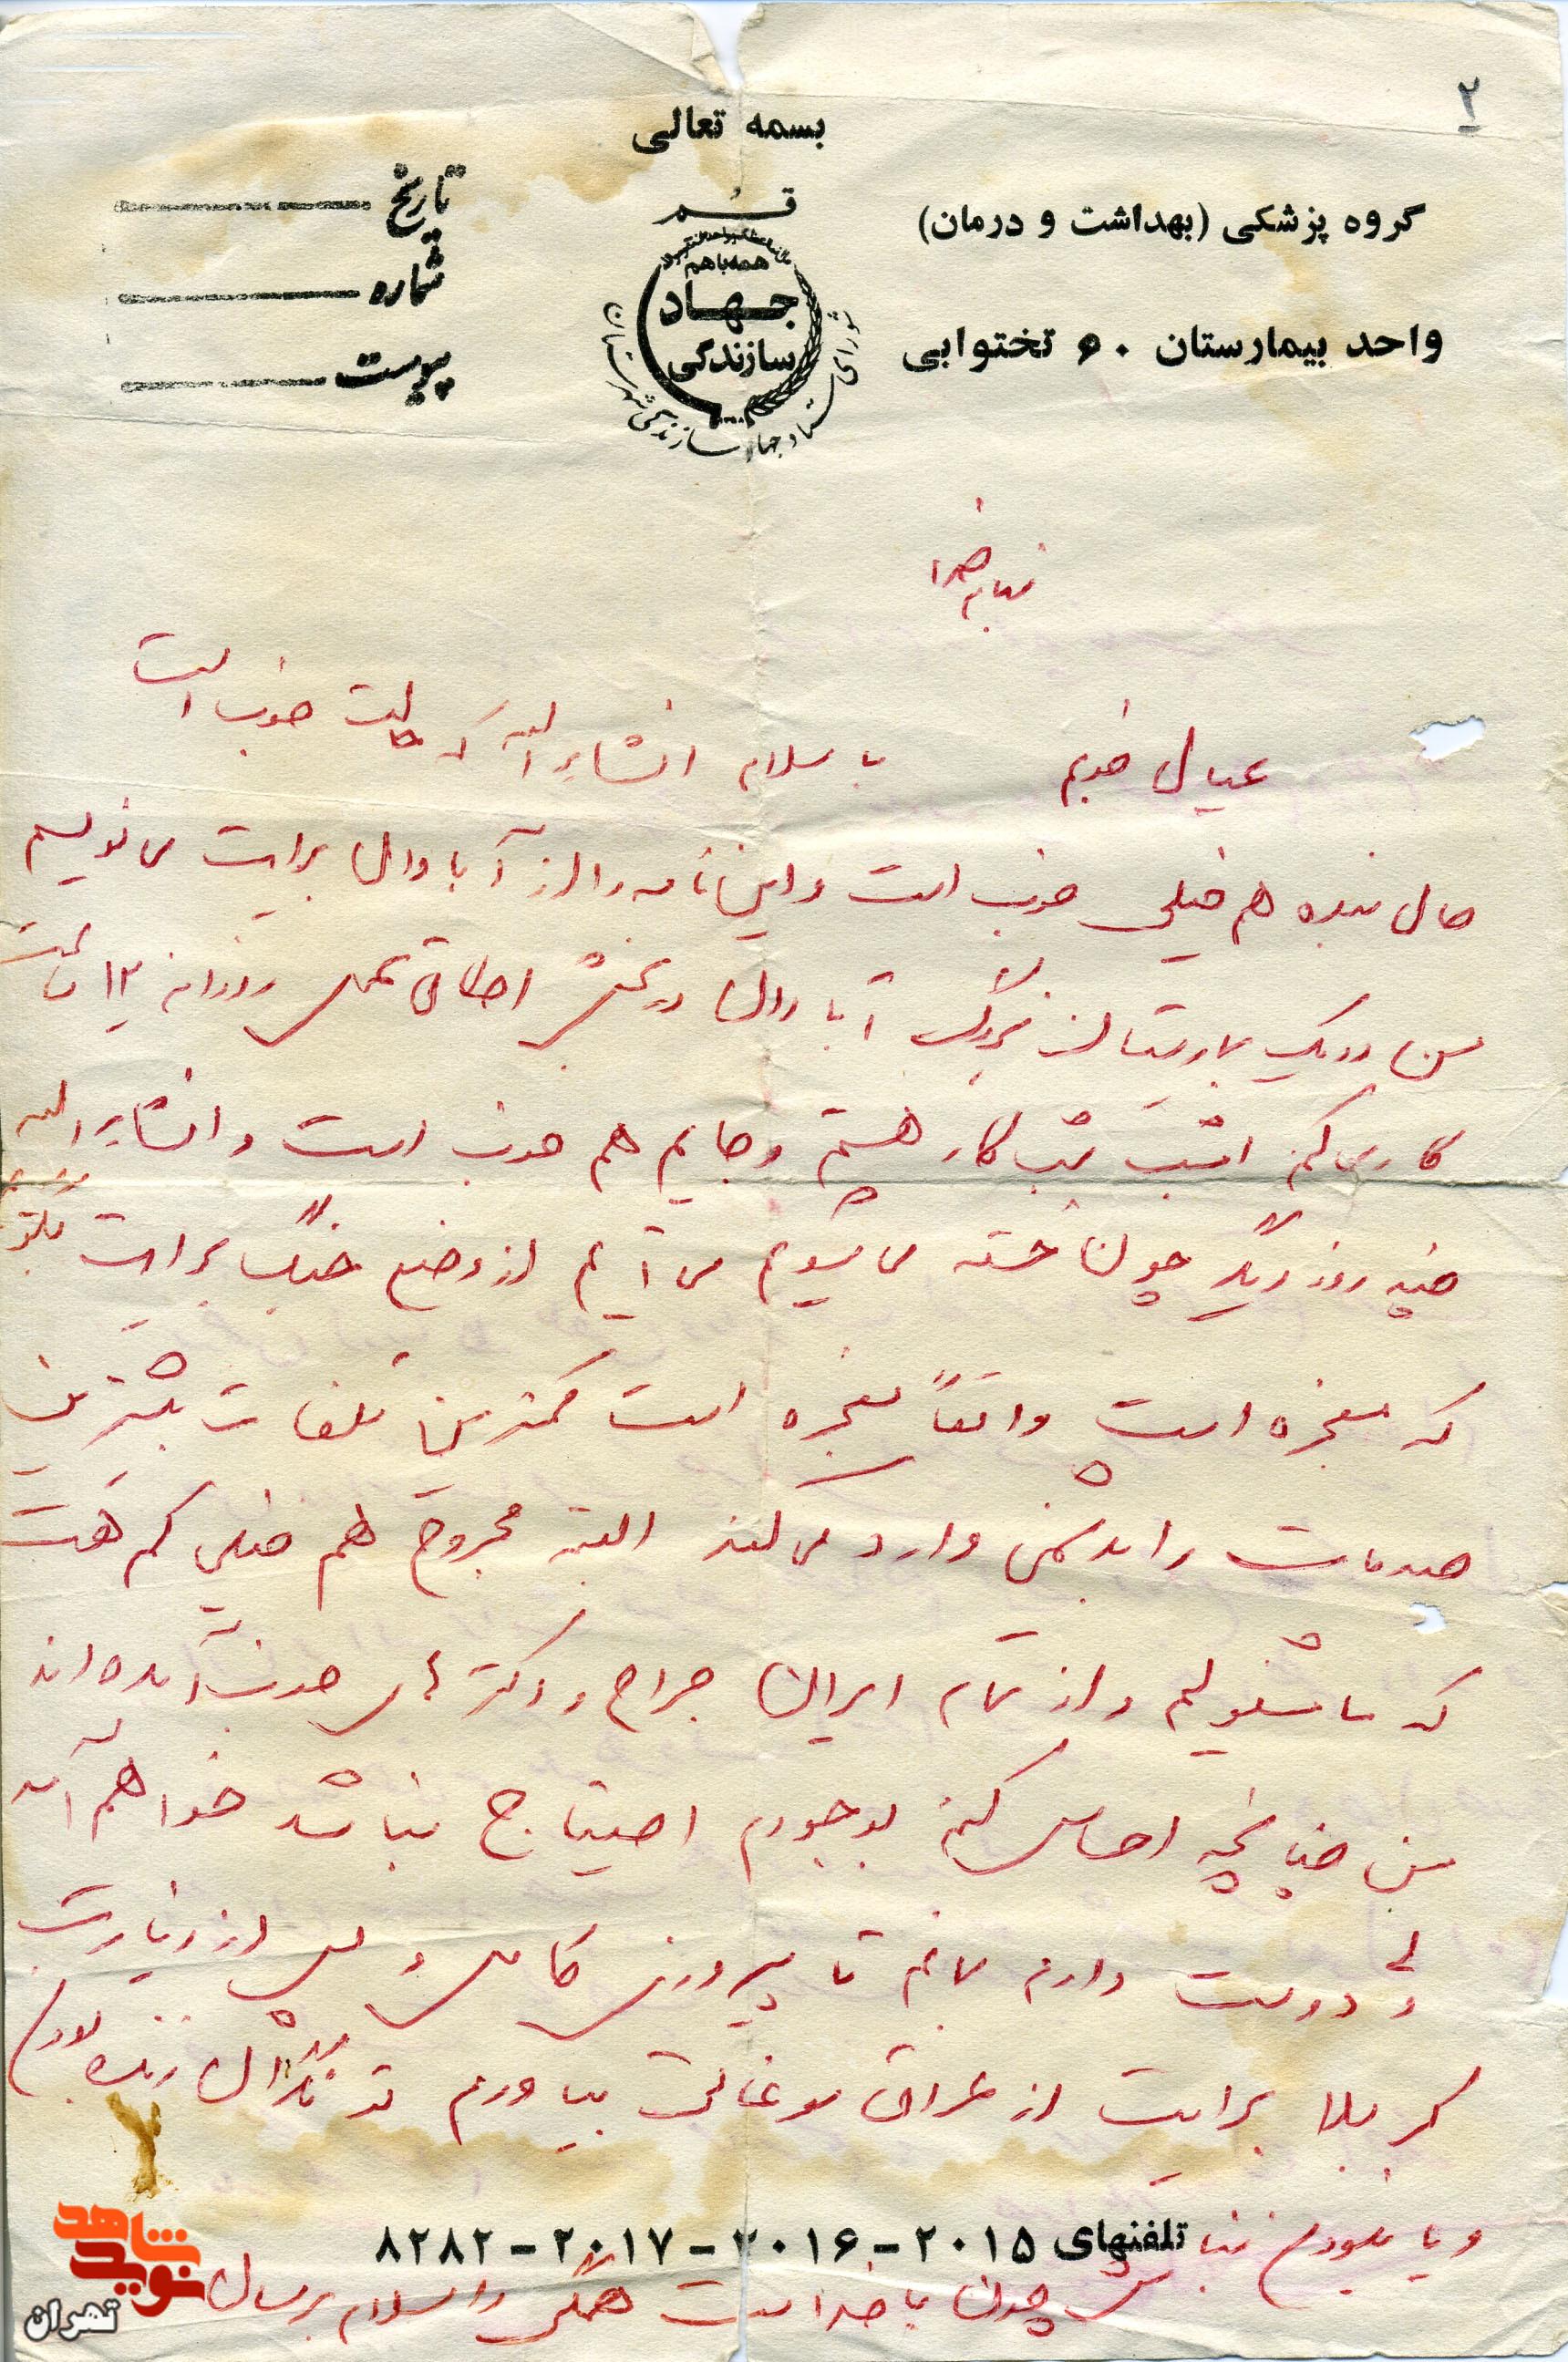 ۲
بسمه تعالی
گروه پزشکی (بهداشت و درمان)
واحد بیمارستان ۶۰ تختوابی
قم
همه با هم
جهاد
سازندگی
تاریخ
شماره
پیوست
بنام خدا
عیال خوبم با سلام انشاءالله که حالت خوب است
حال بنده هم خیلی خوب است و این نامه را از آبادان برایت می نویسم
من در یک بیمارستان بزرگ آبادان در بخش اطاق عمل روزانه ۱۲ ساعت
کار می کنم امشب شب کار هستم و جایم هم خوب است و انشاءالله
چند روز دیگر چون خسته می شوم می آیم از وضع جنگ برایت بگویم
که معجزه است واقعاً معجزه است کمترین تلفات بیشترین
صدمات را به دشمن وارد می کند البته مجروح هم خیلی کم هست
که ما مشغولیم و از تمام ایران جراح و دکترهای خوب آمده اند
من چنانچه احساس کنم بوجودم احتیاج نباشد خواهم آمد
ولی دوست دارم بمانم تا پیروزی کامل و پس از زیارت
کربلا برایت از عراق سوغاتی بیاورم تو نگران زنده بودن
و یا نبودن نباش چون با خداست همگی را سلام برسان
تلفنهای ۲۰۱۵ - ۲۰۱۶ - ۲۰۱۷ - ۸۲۸۲
نوید شاهد
تهران